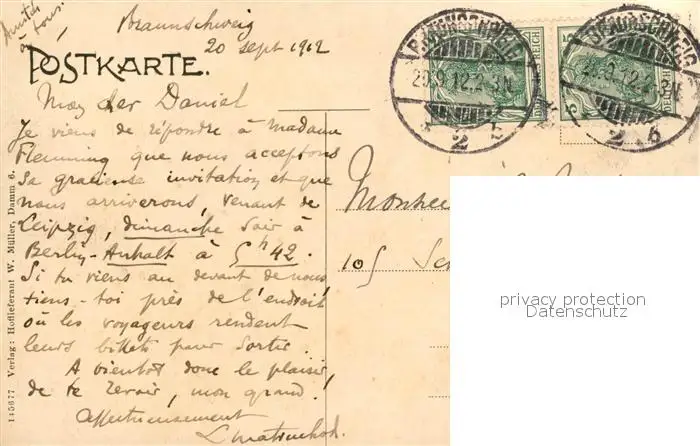 Amitiés
à tous.
Braunschweig
20 sept 1912
POSTKARTE.
Mon cher Daniel
Je viens de répondre à Madame
Flemming que nous acceptons
sa gracieuse invitation et que
nous arriverons, venant de
Leipzig, dimanche soir à
Berlin-Anhalt à 5h42.
Si tu viens au devant de nous
tiens-toi près de l'endroit
où les voyageurs rendent
leurs billets pour sortir.
A bientôt donc le plaisir
de te revoir, mon grand!
Affectueusement
145677 Verlag: Hoflieferant W. Müller, Damm 6.
BRAUNSCHWEIG
20.9.12.2-3N
2 b
DEUTSCHES REICH
5
BRAUNSCHWEIG
20.9.12.2-3N
2 b
5
Monsieur
105
privacy protection
Datenschutz